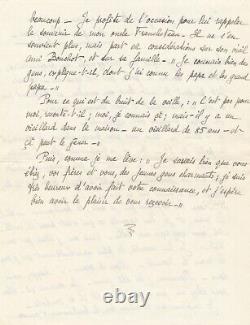 beaucoup_ Je profite de l'occasion pour lui rappeler
le souvenir de mon oncle Fremlutteau. Il ne s'en
souvient plus, mais part en considérations sur son vieil
ami Bonchot et sur sa famille_ "Je connais bien des
gens, explique-t-il, dont j'ai connu les papas et les grand
papas_"
Pour ce qui est du bruit de la veille, : "C'est pas pour
moi, monte-t-il ; moi, je connais ça ; mais il y a un
vieillard dans la maison_ un vieillard de 85 ans_ et
ça peut le gêner_
Puis, comme je me lève : "Je savais bien que vous
étiez, vos frères et vous, des jeunes gens charmants ; je suis
très heureux d'avoir fait votre connaissance, et j'espère
bien avoir le plaisir de vous revoir_"